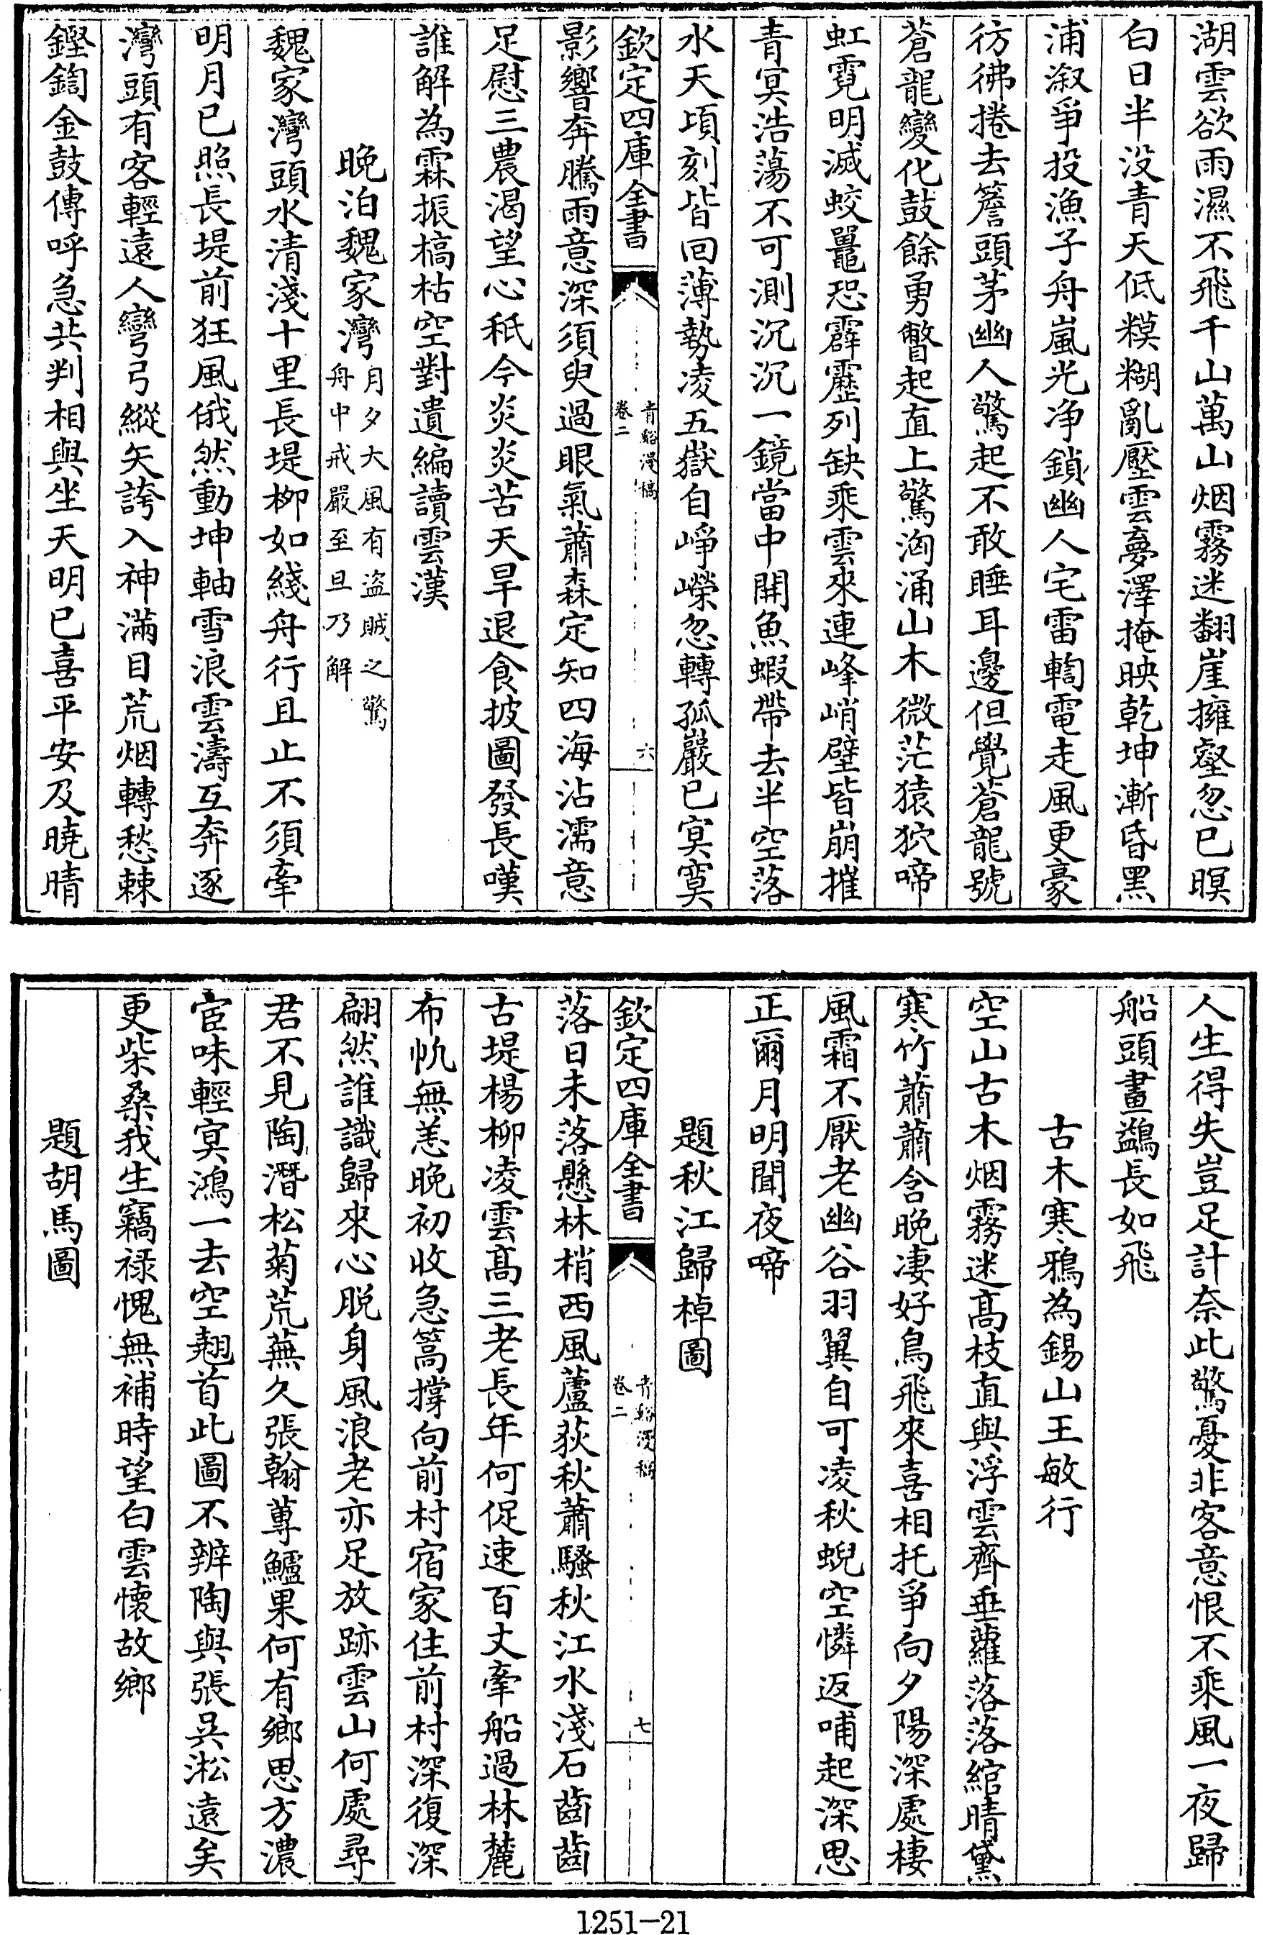 湖雲欲雨濕不飛千山萬山烟霧迷翻崖擁壑忽已暝
白日半没青天低糢糊亂壓雲夢澤掩映乾坤漸昏黑
浦溆爭投漁子舟嵐光净鎖幽人宅雷轟電走風更豪
彷彿捲去簷頭茅幽人驚起不敢睡耳邊但覺蒼龍號
蒼龍變化鼓餘勇瞥起直上驚洶涌山木微茫猿狖啼
虹霓明滅蛟鼉恐霹靂列缺乘雲來連峰峭壁皆崩摧
青冥浩蕩不可測沉沉一鏡當中開魚蝦帶去半空落
水天項刻皆回薄勢凌五嶽自崢嶸忽轉孤巖已冥寞
欽定四庫全書
青谿漫稿
卷二
六
影響奔騰雨意深須臾過眼氣蕭森定知四海沾濡意
足慰三農渴望心秖今炎炎苦天旱退食披圖發長嘆
誰解為霖振槁枯空對遺編讀雲漢
晚泊魏家灣
月夕大風有盗賊之驚
舟中戒嚴至旦乃解
魏家灣頭水清淺十里長堤栁如綫舟行且止不須牽
明月已照長堤前狂風俄然動坤軸雪浪雲濤互奔逐
灣頭有客輕遠人彎弓縱矢誇入神滿目荒烟轉愁棘
鏗鍧金鼓傳呼急共判相與坐天明已喜平安及曉晴
人生得失豈足計奈此驚憂非客意恨不乘風一夜歸
船頭畫鷁長如飛
古木寒鴉為錫山王敏行
空山古木烟霧迷髙枝直與浮雲齊垂蘿落落綰晴黛
寒竹蕭蕭含晚凄好鳥飛來喜相托爭向夕陽深處棲
風霜不厭老幽谷羽翼自可凌秋蜺空憐返哺起深思
正爾月明聞夜啼
題秋江歸棹圖
欽定四庫全書
青谿漫稿
卷二
七
落日未落懸林梢西風蘆荻秋蕭騷秋江水淺石齒齒
古堤楊栁凌雲髙三老長年何促速百丈牽船過林麓
布帆無恙晚初收急篙撐向前村宿家住前村深復深
翩然誰識歸來心脱身風浪老亦足放跡雲山何處尋
君不見陶潛松菊荒蕪久張翰蓴鱸果何有鄉思方濃
宦味輕冥鴻一去空翹首此圖不辨陶與張吳淞遠矣
更柴桑我生竊禄愧無補時望白雲懷故鄉
題胡馬圖
1251-21